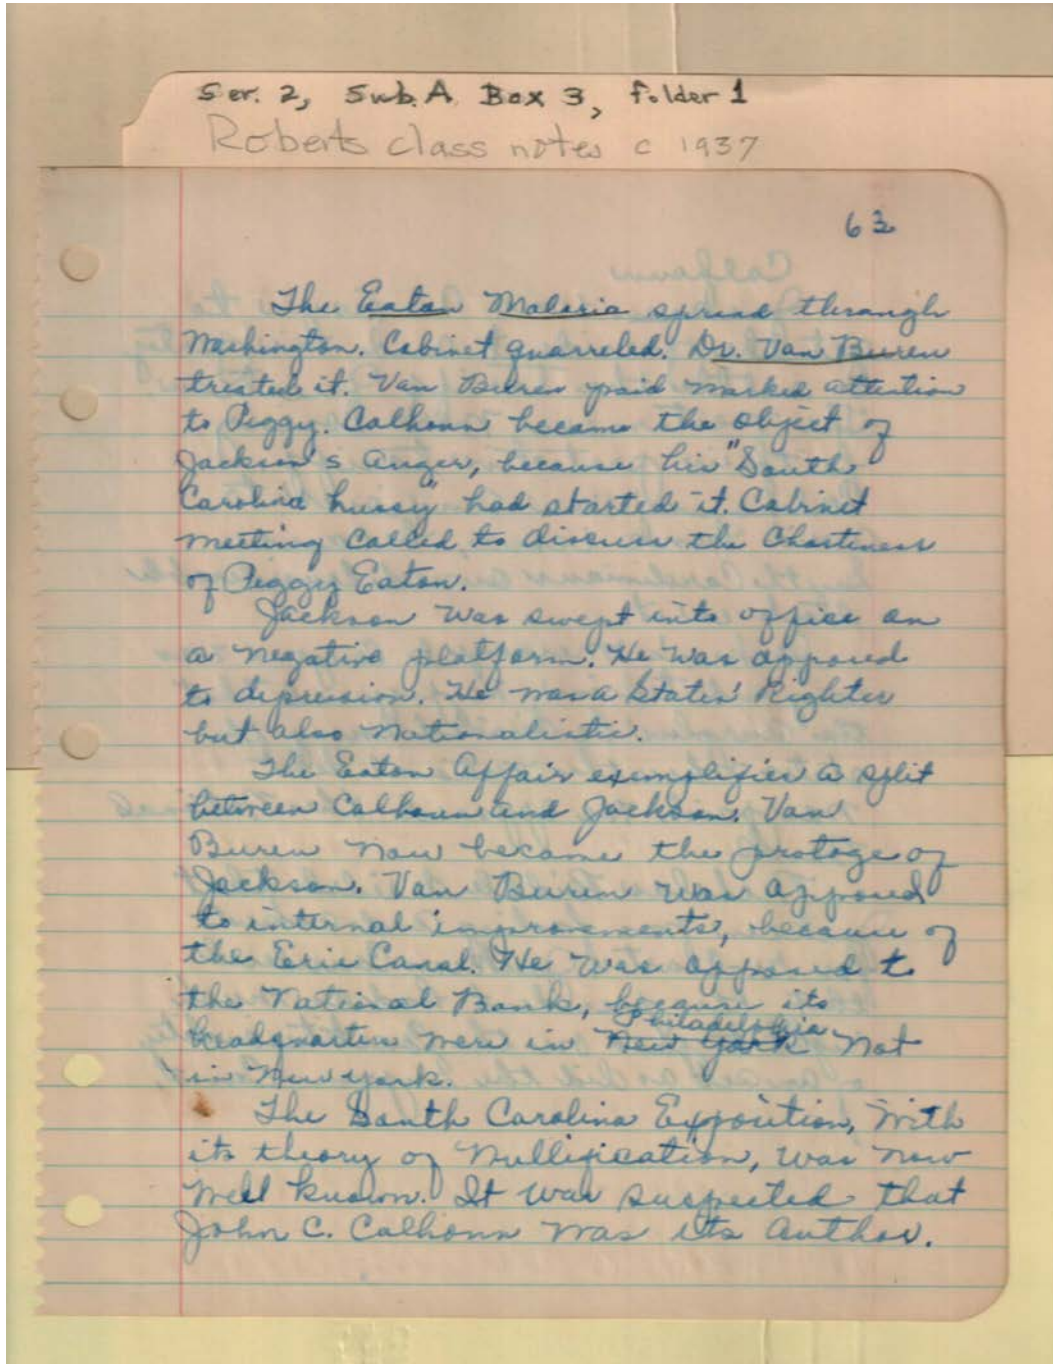 Ser. 2, Sub. A Box 3, folder 1
Roberts class notes c 1937
63
The Eaton Malaria spread through
Washington. Cabinet quarreled. Dr. Van Buren
treated it. Van Buren paid marked attention
to Peggy. Calhoun became the object of
Jackson's anger, because his "South
Carolina hussy" had started it. Cabinet
meeting called to discuss the Chasteness
of Peggy Eaton.
Jackson was swept into office on
a negative platform. He was opposed
to depression. He was a States' Righter
but also Nationalistic.
The Eaton Affair exemplifies a split
between Calhoun and Jackson. Van
Buren now became the protoge of
Jackson. Van Buren was opposed
to internal improvements, because of
the Erie Canal. He was opposed to
the National Bank, because its
Philadelphia
headquarters were in New York Not
in New York.
The South Carolina Exposition, with
its theory of Nullification, was now
well known. It was suspected that
John C. Calhoun was its author.